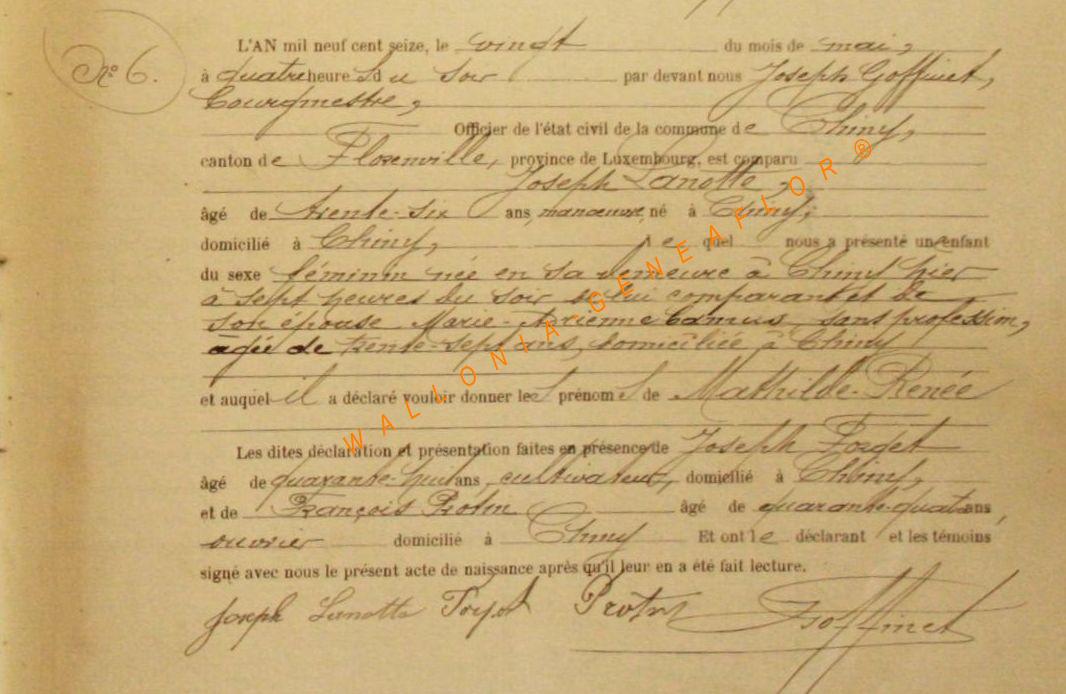 No 6.
L'AN mil neuf cent seize, le vingt du mois de mai,
à quatre heures du soir par devant nous Joseph Goffinet,
bourgmestre,
Officier de l'état civil de la commune de Chiny,
canton de Florenville, province de Luxembourg, est comparu
Joseph Lanotte,
âgé de trente-six ans, manoeuvre, né à Chiny,
domicilié à Chiny, lequel nous a présenté un enfant
du sexe féminin née en sa demeure à Chiny hier
à sept heures du soir de lui comparant et de
son épouse Marie-Adrienne Camus, sans profession,
âgée de trente-sept ans, domiciliée à Chiny
et auquel il a déclaré vouloir donner les prénoms de Mathilde-Renée
Les dites déclaration et présentation faites en présence de Joseph Forget
âgé de quarante-huit ans, cultivateur, domicilié à Chiny,
et de François Protin âgé de quarante-quatre ans,
ouvrier domicilié à Chiny Et ont le déclarant et les témoins
signé avec nous le présent acte de naissance après qu'il leur en a été fait lecture.
Joseph Lanotte Forget Protin Goffinet
WALLONIA-GENEAFLOR®